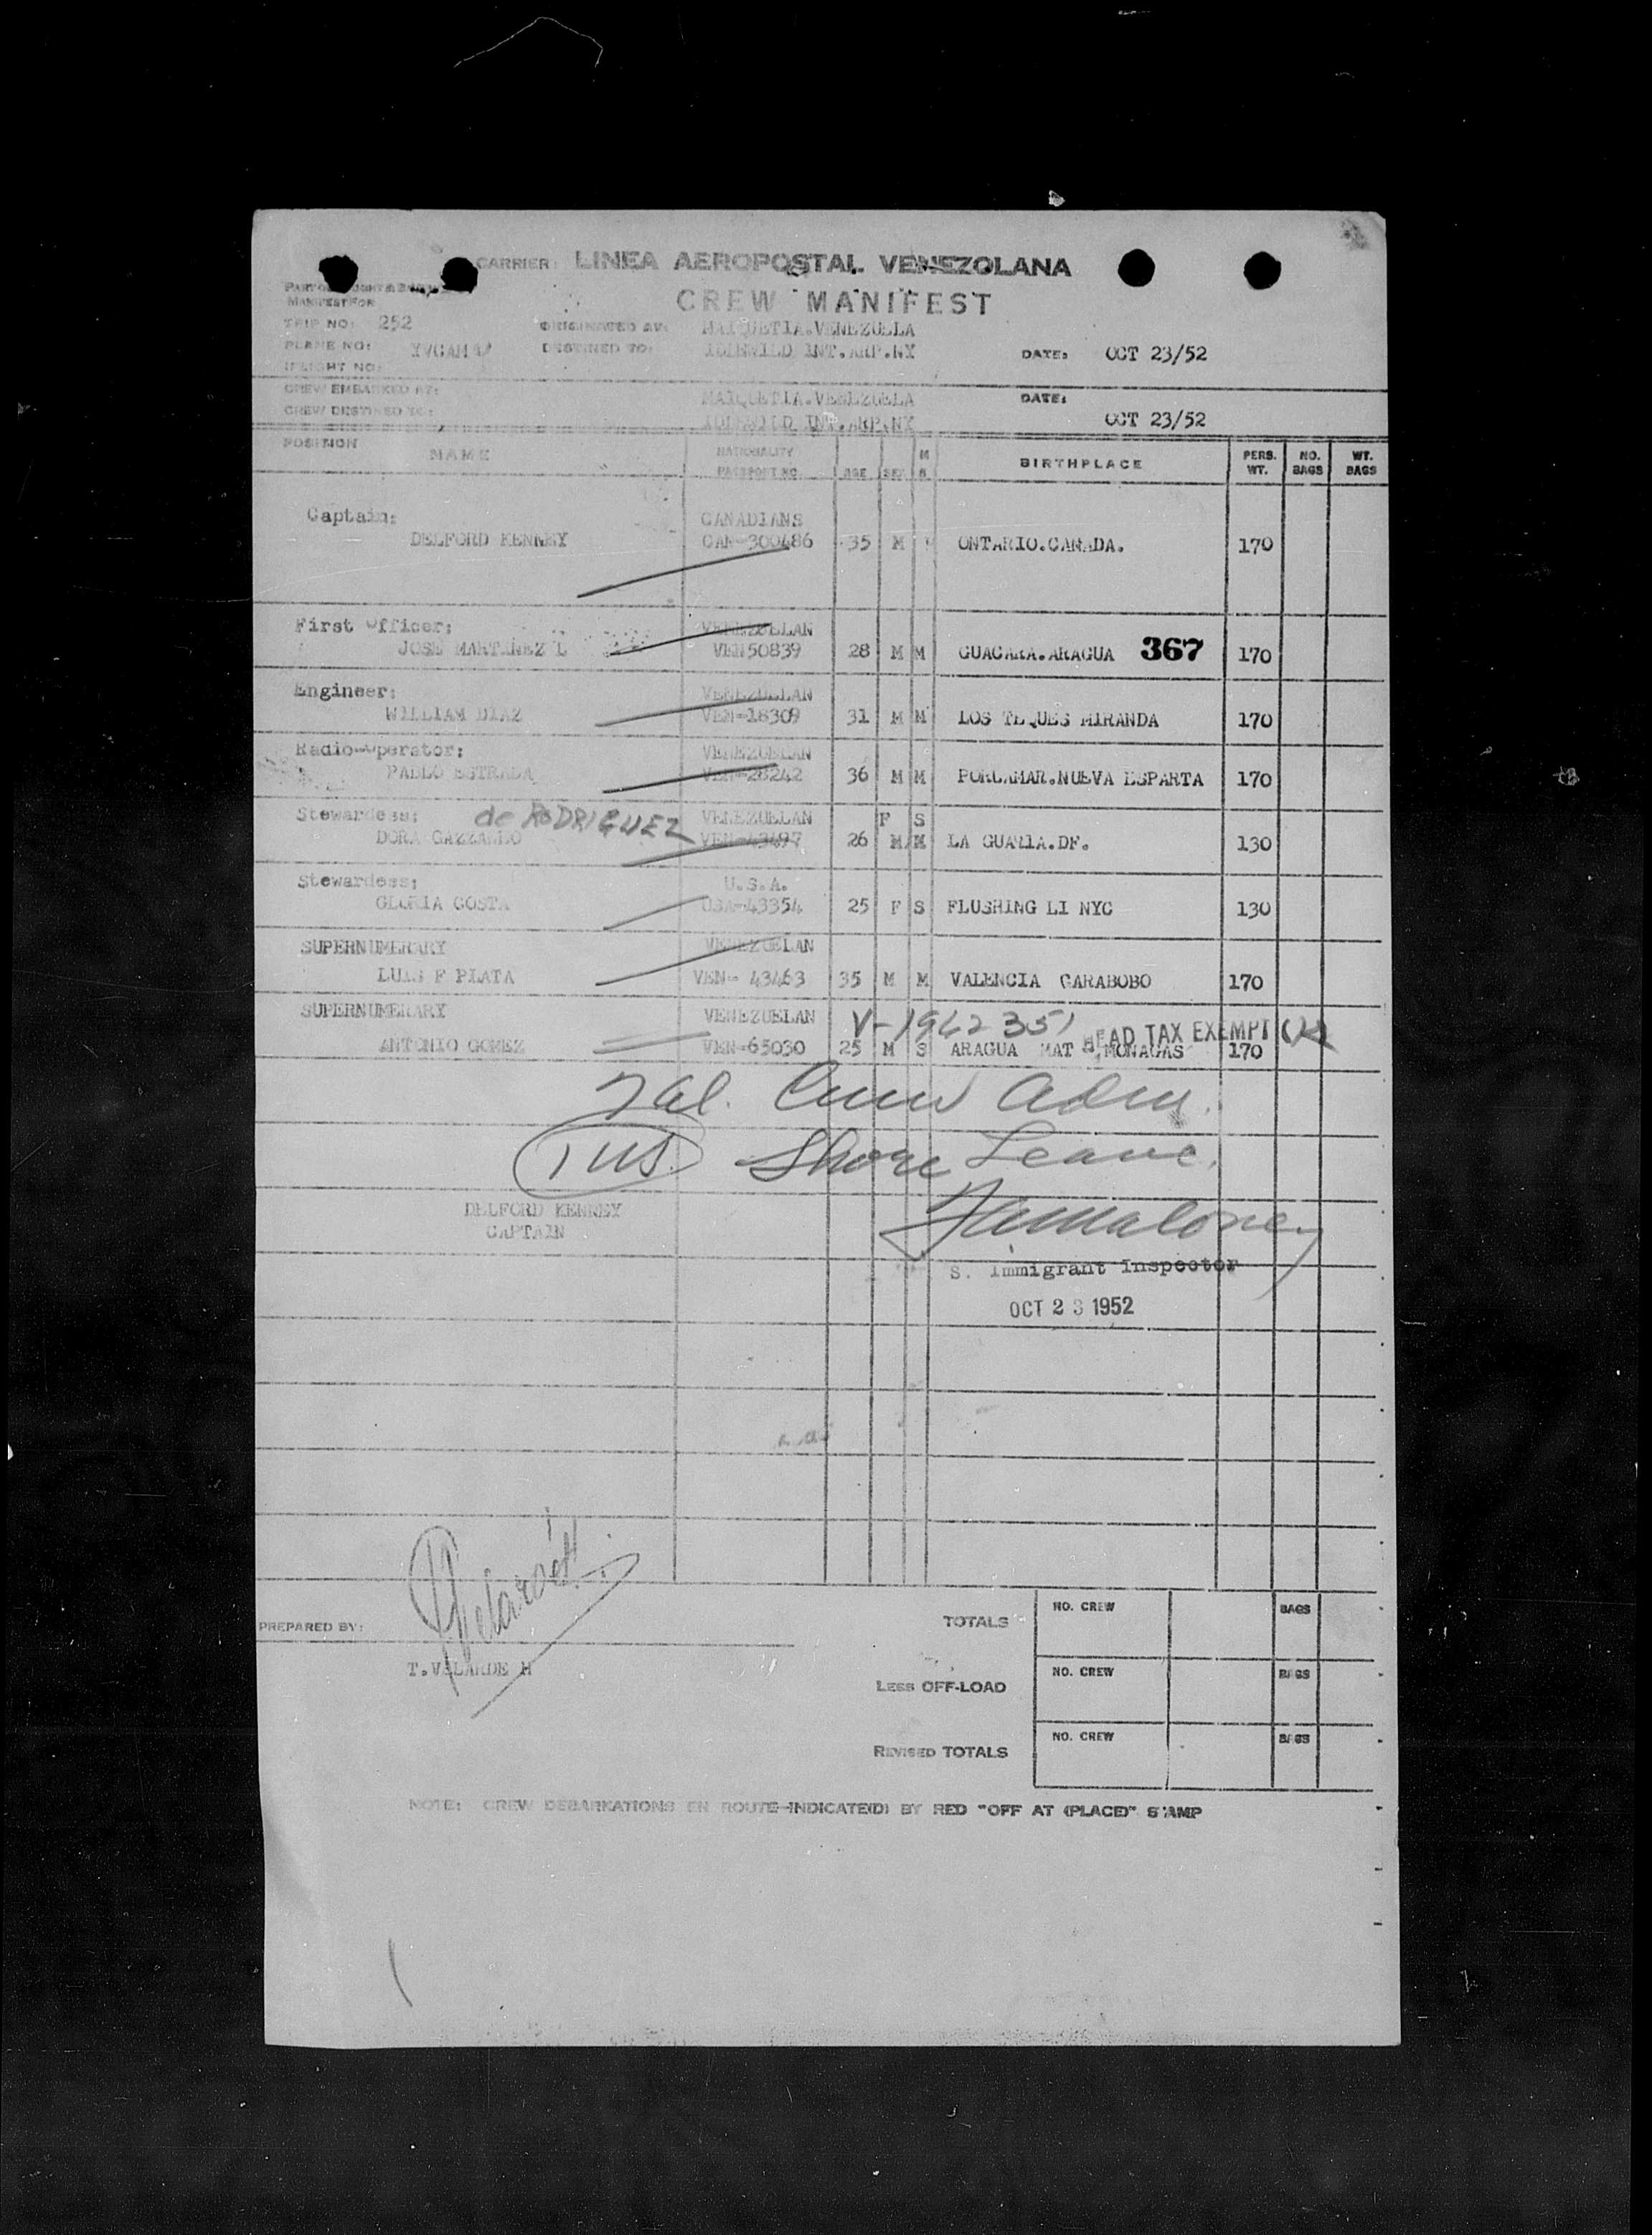 CARRIER: LINEA AEROPOSTAL VENEZOLANA
CREW MANIFEST
MANIFEST FOR
TRIP NO: 252 ORIGINATED AT: MAIQUETIA.VENEZUELA
PLANE NO: DESTINED TO: IDLEWILD INT.ARP.NY DATE: OCT 23/52
FLIGHT NO:
CREW EMBARKED AT: MAIQUETIA.VENEZUELA DATE:
CREW DESTINED TO: IDLEWILD INT.ARP.NY OCT 23/52
POSITION NAME NATIONALITY PASSPORT NO. AGE SEX M S BIRTHPLACE PERS. WT. NO. BAGS WT. BAGS
Captain: CANADIANS
DELFORD KENNEY CAN-300486 35 M ONTARIO.CANADA. 170
First Officer: VENEZUELAN
JOSE MARTINEZ L VEN50839 28 M M GUACARA.ARAGUA 367 170
Engineer: VENEZUELAN
WILLIAM DIAZ VEN-18309 31 M M LOS TEQUES MIRANDA 170
Radio-Operator: VENEZUELAN
PABLO ESTRADA VEN-28242 36 M M PORLAMAR.NUEVA ESPARTA 170
Stewardess: de RODRIGUEZ VENEZUELAN F S
DORA GAZZANEO VEN-43497 26 M M LA GUARIA.DF. 130
Stewardess: U.S.A.
GLORIA COSTA USA-43354 25 F S FLUSHING LI NYC 130
SUPERNUMERARY VENEZUELAN
LUIS F PLATA VEN- 43463 35 M M VALENCIA CARABOBO 170
SUPERNUMERARY VENEZUELAN V-1942351 HEAD TAX EXEMPT
ANTONIO GOMEZ VEN-65030 25 M S ARAGUA MAT MONAGAS 170
7 al. Crew Adm.
1 US Shore Leave.
DELFORD KENNEY
CAPTAIN
S. Immigrant Inspector
OCT 23 1952
PREPARED BY:
T.VELARDE H
TOTALS NO. CREW BAGS
LESS OFF-LOAD NO. CREW BAGS
REVISED TOTALS NO. CREW BAGS
NOTE: CREW DEBARKATIONS EN ROUTE-INDICATE(D) BY RED "OFF AT (PLACE)" STAMP